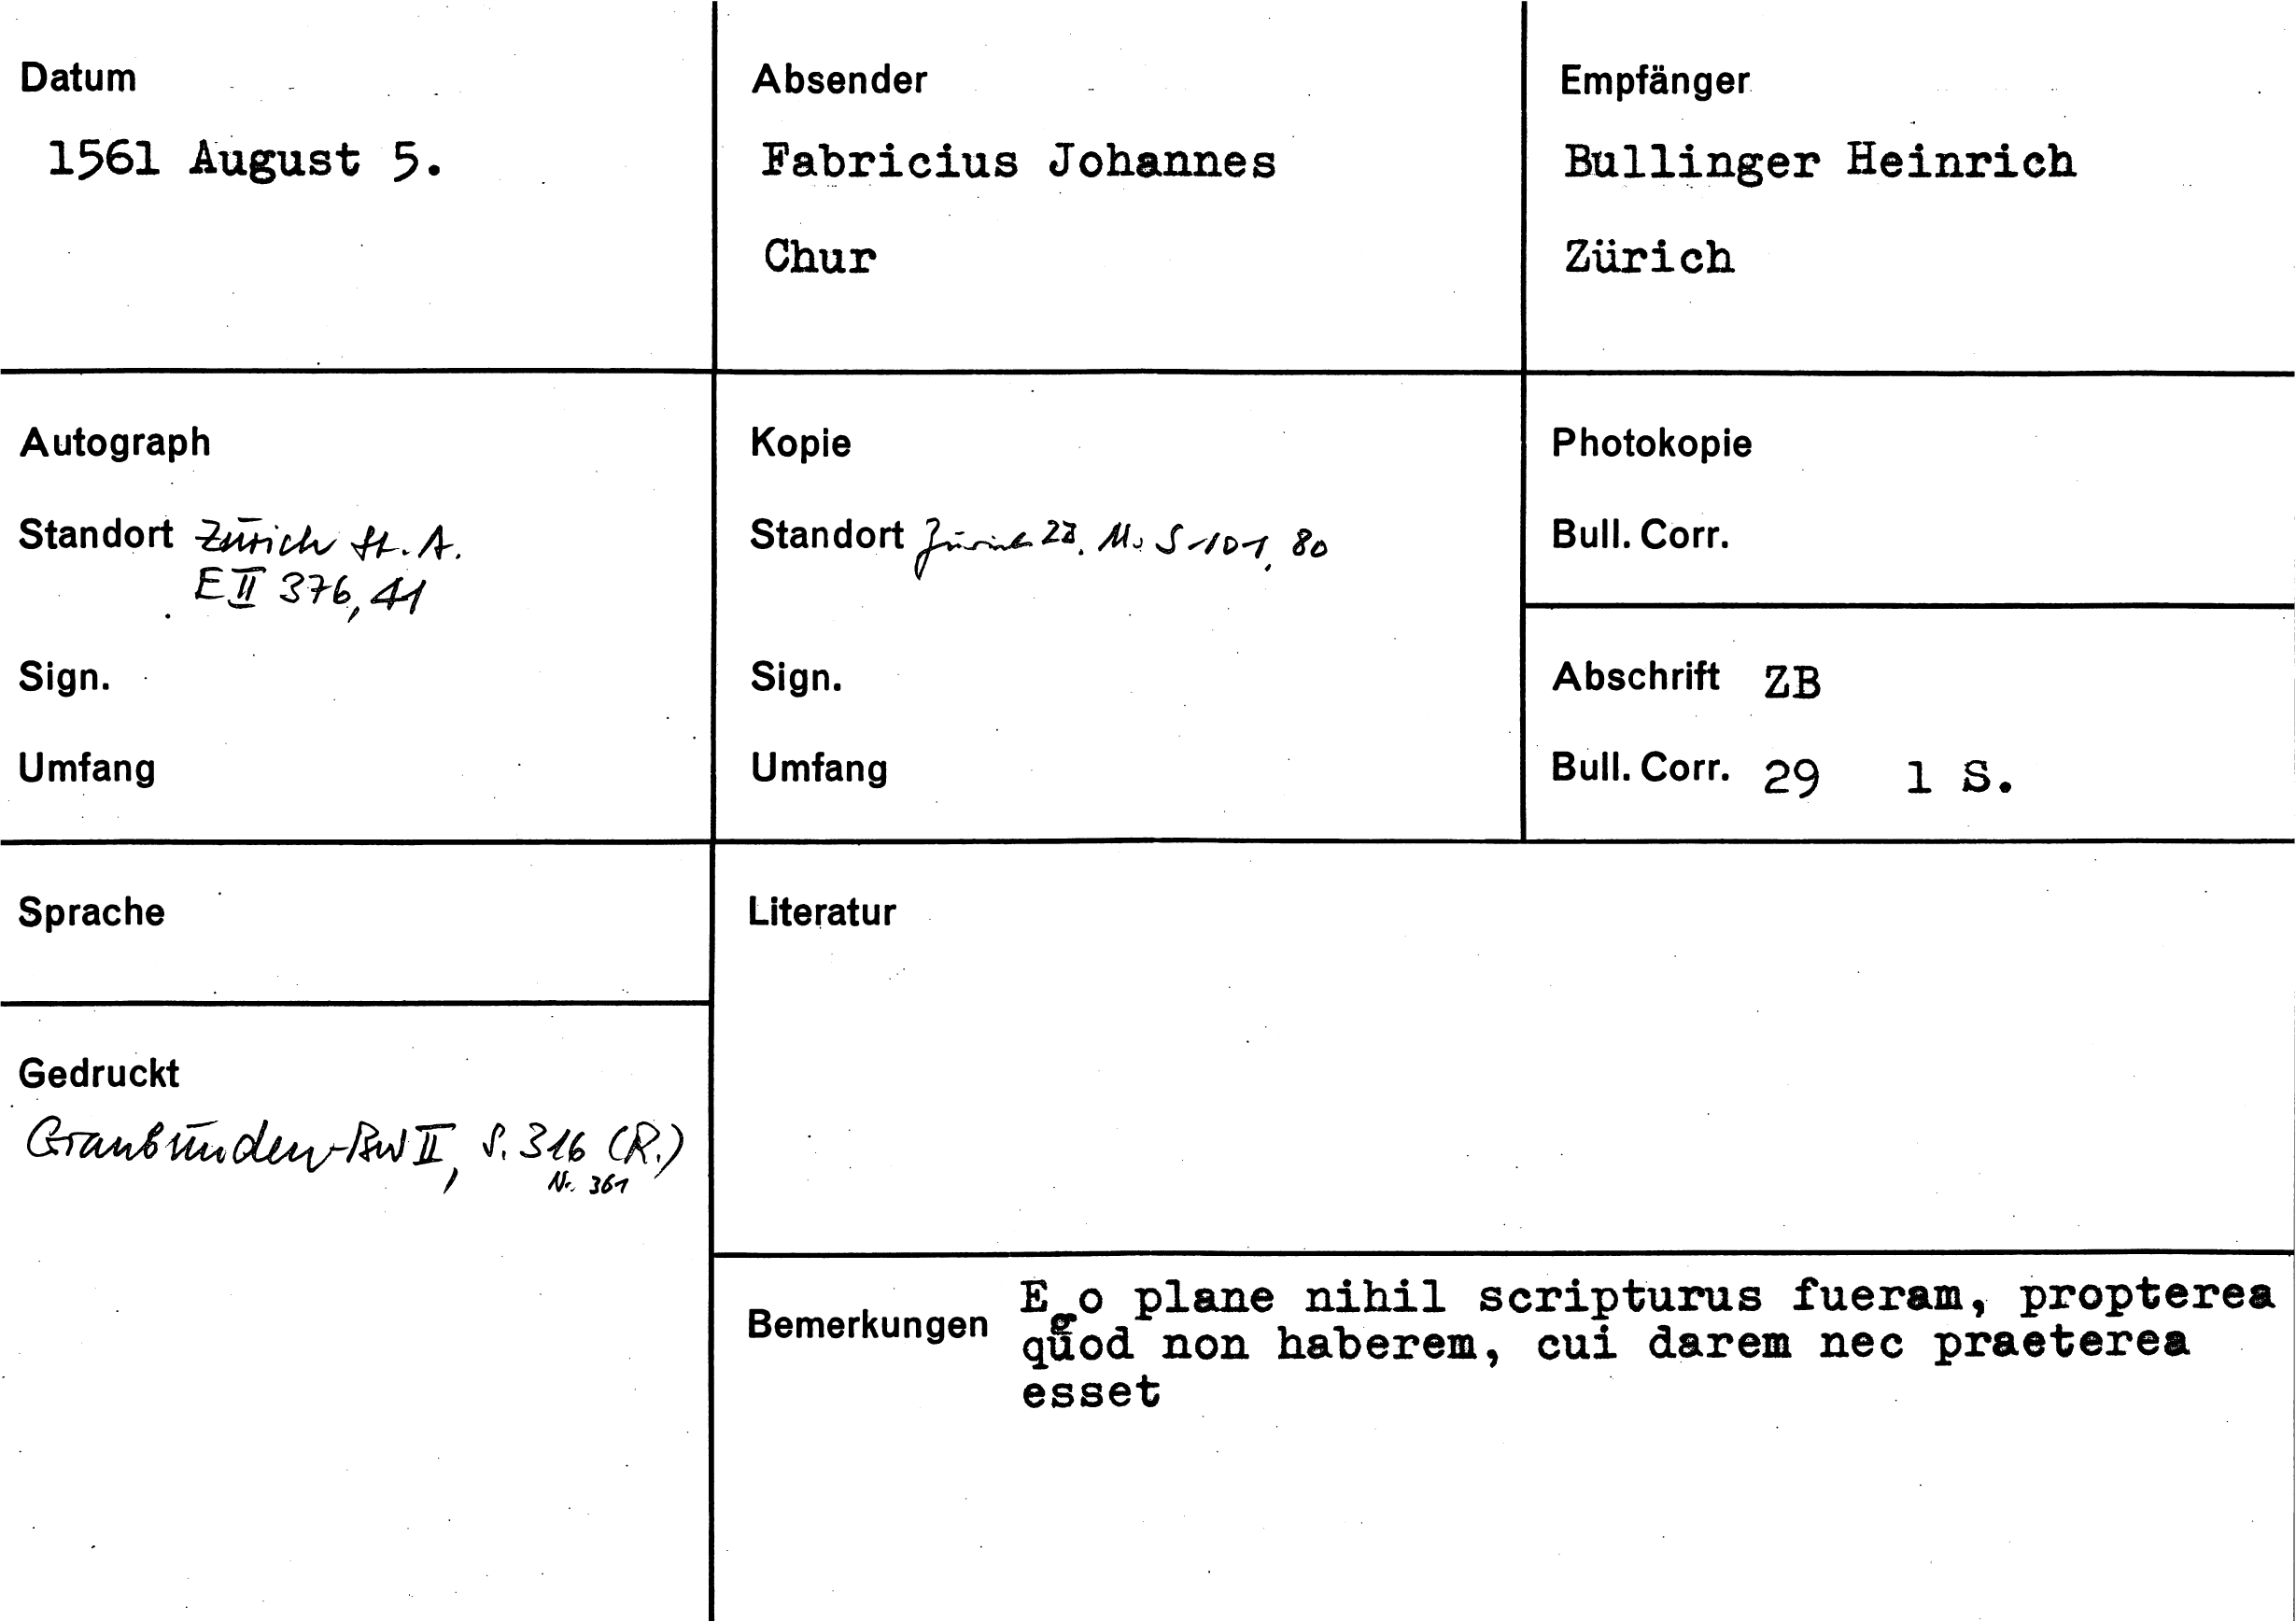 Datum
1561 August 5.
Absender
Fabricius Johannes
Chur
Empfänger
Bullinger Heinrich
Zürich
Autograph
Standort Zürich St. A.
E II 376, 41
Sign.
Umfang
Kopie
Standort Zürich ZB. Ms S 101, 80
Sign.
Umfang
Photokopie
Bull. Corr.
Abschrift ZB
Bull. Corr. 29 1 S.
Sprache
Gedruckt
Graubünden-BW II, S. 316 (R.)
Nr. 361
Literatur
Bemerkungen
Ego plane nihil scripturus fueram, propterea
quod non haberem, cui darem nec praeterea
esset